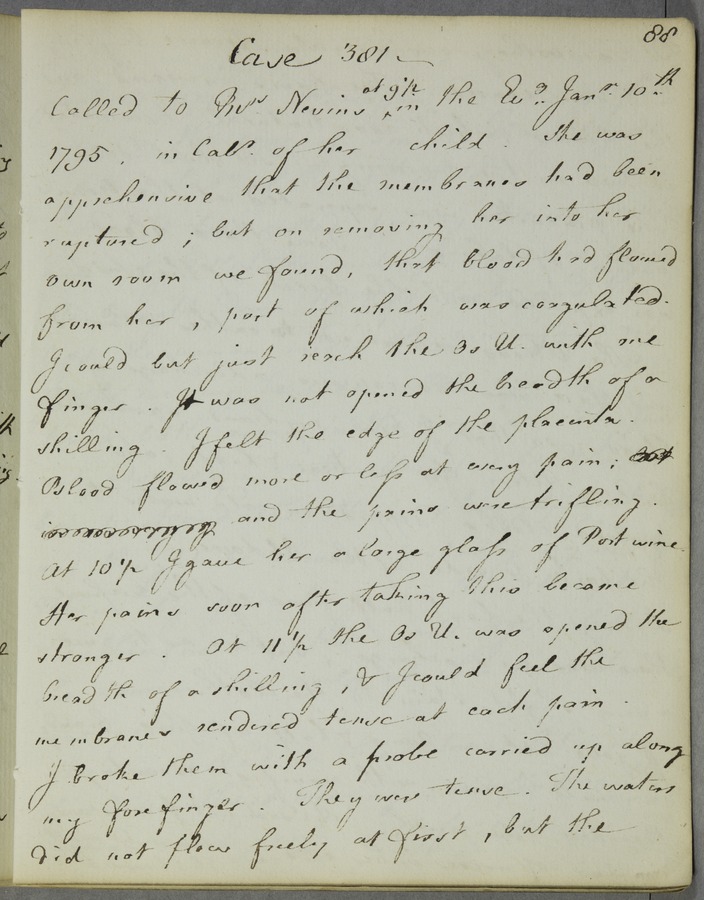 88
Case 381
Called to Mrs Nevins at 9 1/2 in the Ev.g Janr. 10th
1795, in Lab.r of her child. She was
apprehensive that the membranes had been
ruptured; but on removing her into her
own room we found, that blood had flowed
from her, part of which was coagulated.
I could but just reach the Os U. with me
finger. It was not opened the breadth of a
shilling. I felt the edge of the placenta.
Blood flowed more or less at every pain;
and the pains were trifling.
At 10 1/2 I gave her a large glass of Port wine.
Her pains soon after taking this became
stronger. At 11 1/2 the Os U. was opened the
breadth of a shilling, & I could feel the
membranes rendered tense at each pain.
I broke them with a probe carried up along
my fore finger. They were tense. The waters
did not flow freely at first, but the